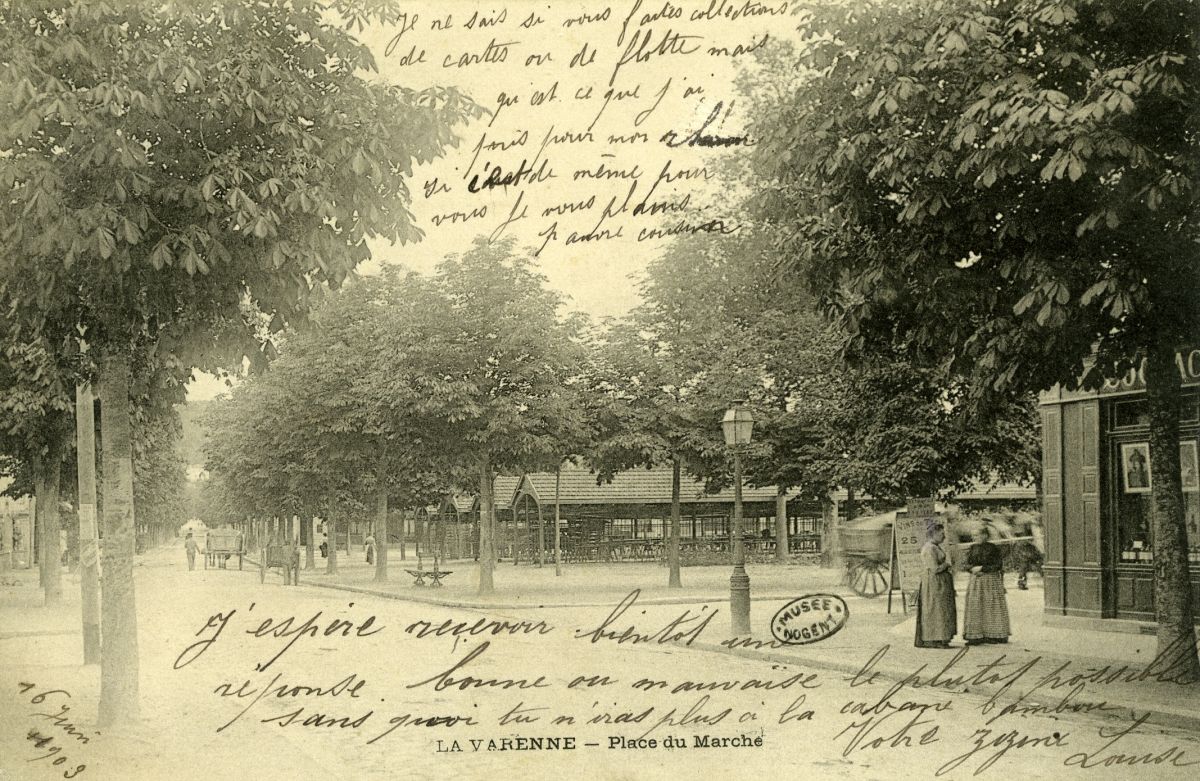 Je ne sais si vous faites collections
de cartes ou de flotte mais
qu'est ce que j'ai
pris pour mon
si de même pour
vous Je vous plains
pauvre cousine
25
MUSÉE
NOGENT
J'espère reçevoir bientôt un
réponse bonne ou mauvaise le plutot possible
sans quoi tu n'iras plus à la cabane bambou
Votre zizine
Louise
16 Juin
1903
LA VARENNE – Place du Marché